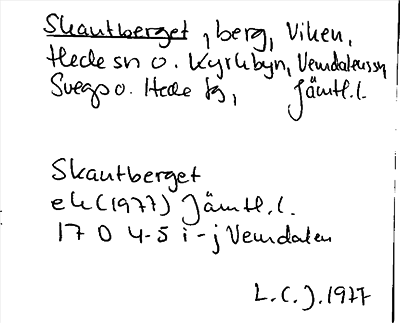 Skautberget, berg, Viken,
Hede sn o. Kyrkbyn, Vemdalens sn
Svegs o. Hede tg, Jämtl. l.
Skautberget
ek (1977) Jämtl. l.
17 D 4-5 i-j Vemdalen
L.C.J. 1977